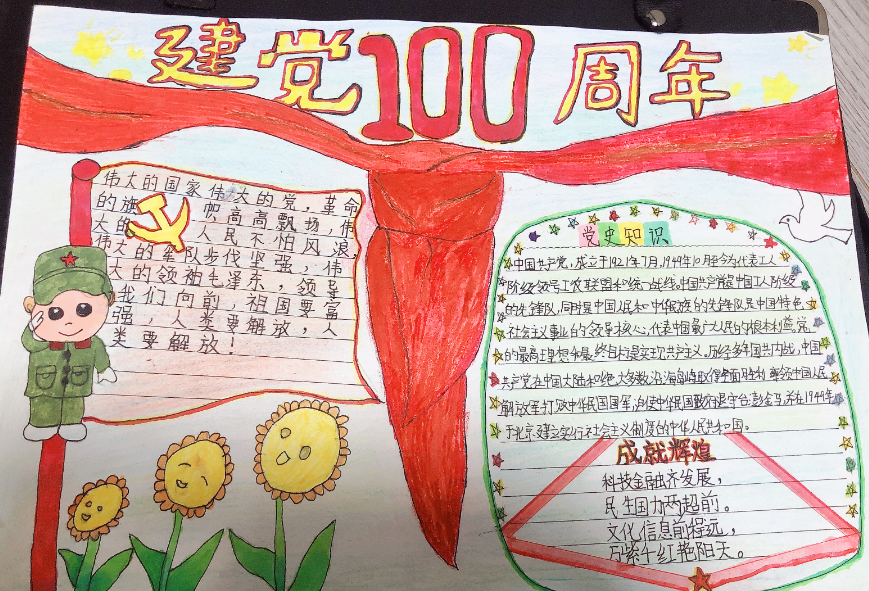 建党100周年
伟大的国家伟大的党，革命
的旗帜，高高飘扬，伟
大的人民不怕风浪，
伟大的军队步伐坚强，伟
大的领袖毛泽东，领导
我们向前，祖国要富
强，人类要解放，人
类要解放！
党史知识
中国共产党，成立于1921年7月，1949年10月至今为代表工人
阶级领导工农联盟和统一战线。中国共产党是中国工人阶级
的先锋队，同时是中国人民和中华民族的先锋队是中国特色
社会主义事业的领导核心，代表中国最广大人民的根本利益党
的最高理想和最终目标是实现共产主义。历经多年国共内战，中国
共产党在中国大陆和绝大多数沿海岛屿取得全面胜利率领中国人民
解放军打败中华民国国军，迫使中华民国政府退守台澎金马，并在1949年
于北京建立实行社会主义制度的中华人民共和国。
成就辉煌
科技金融齐发展，
民生国力两超前。
文化信息前程远，
万紫千红艳阳天。